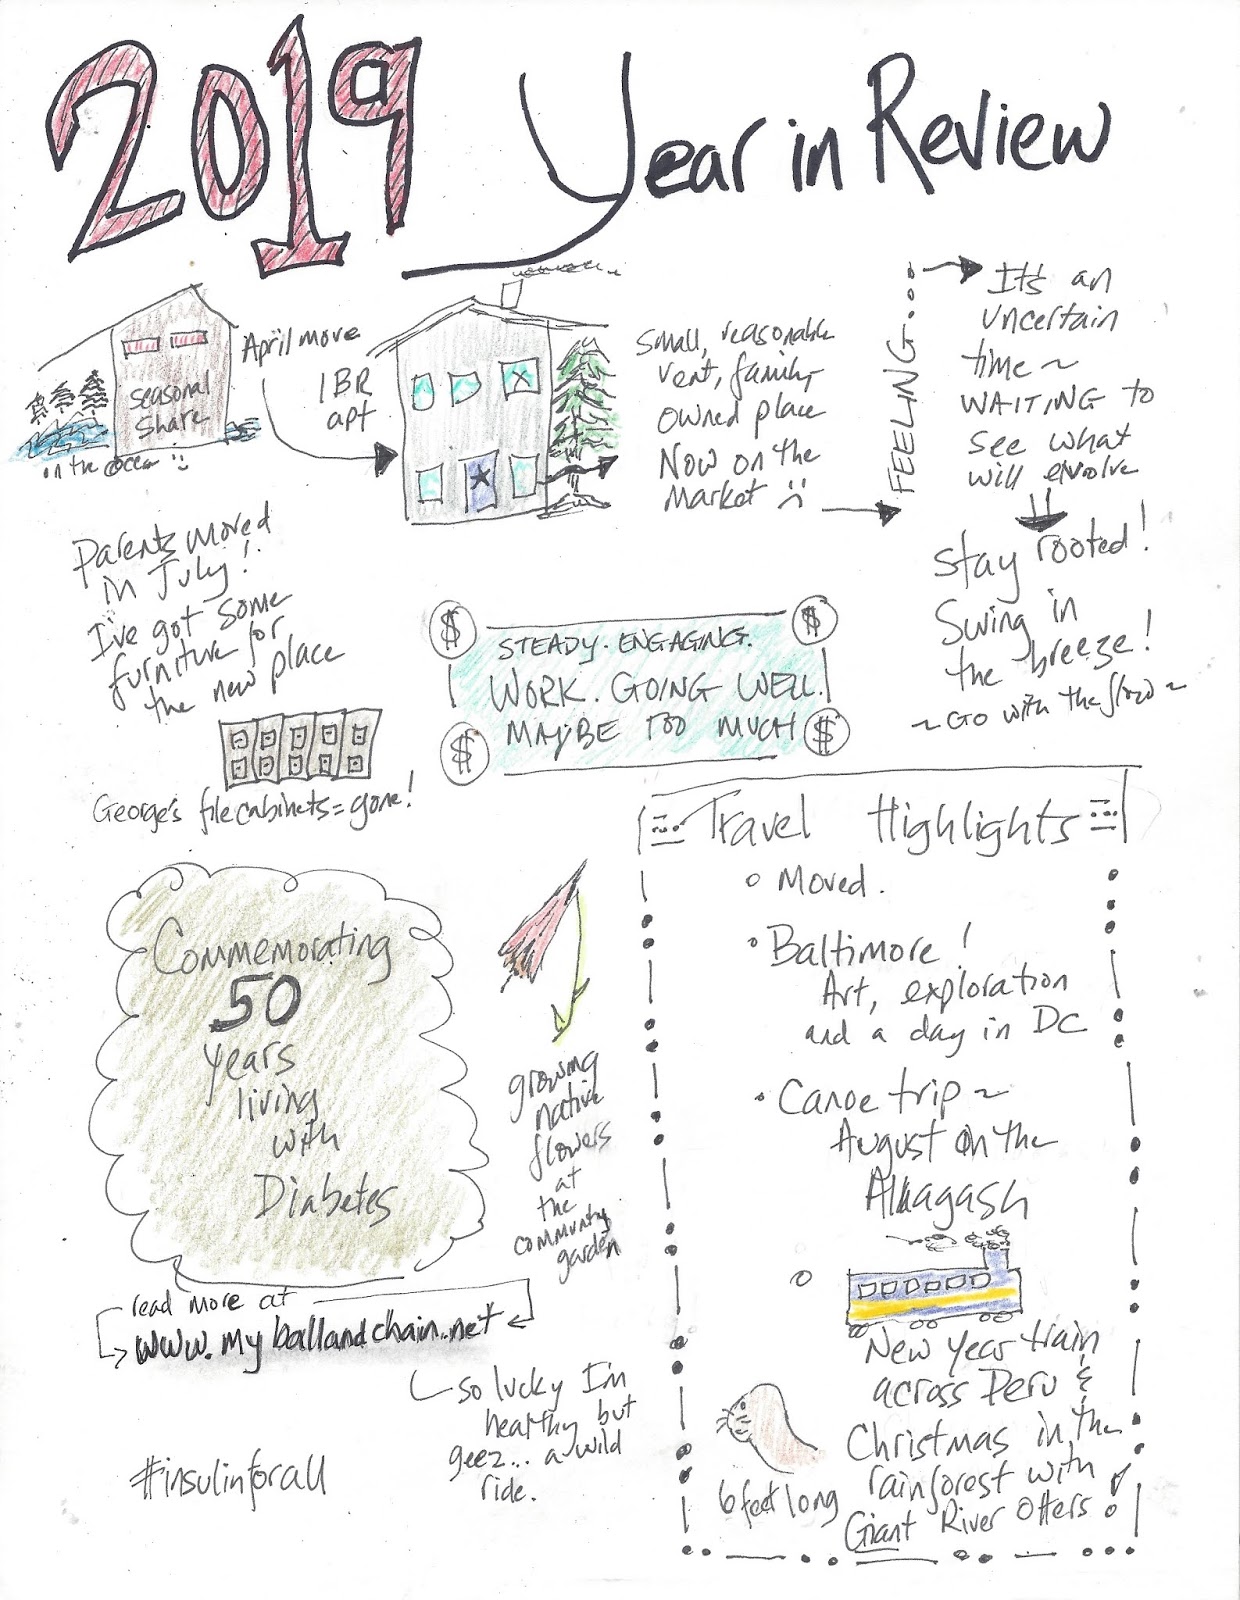 2019 Year in Review
seasonal
share
on the ocean
April move
1BR
apt
Small, reasonable
rent, family
owned place
Now on the
Market
FEELING...
It's an
uncertain
time ~
WAITING to
see what
will evolve
stay rooted!
Swing in
the breeze!
~ Go with the flow ~
Parents moved
in July!
I've got some
furniture for
the new place
George's file cabinets = gone!
$ $
STEADY. ENGAGING.
WORK. GOING WELL.
MAYBE TOO MUCH
$ $
Travel Highlights
Moved.
Baltimore!
Art, exploration
and a day in DC
Canoe trip ~
August on the
Allagash
New Year train
across Peru &
Christmas in the
rainforest with
Giant River Otters
6 feet long
Commemorating
50
years
living
with
Diabetes
growing
native
flowers
at
the
community
garden
read more at
www.myballandchain.net
so lucky I'm
healthy but
geez... a wild
ride.
#insulinforall